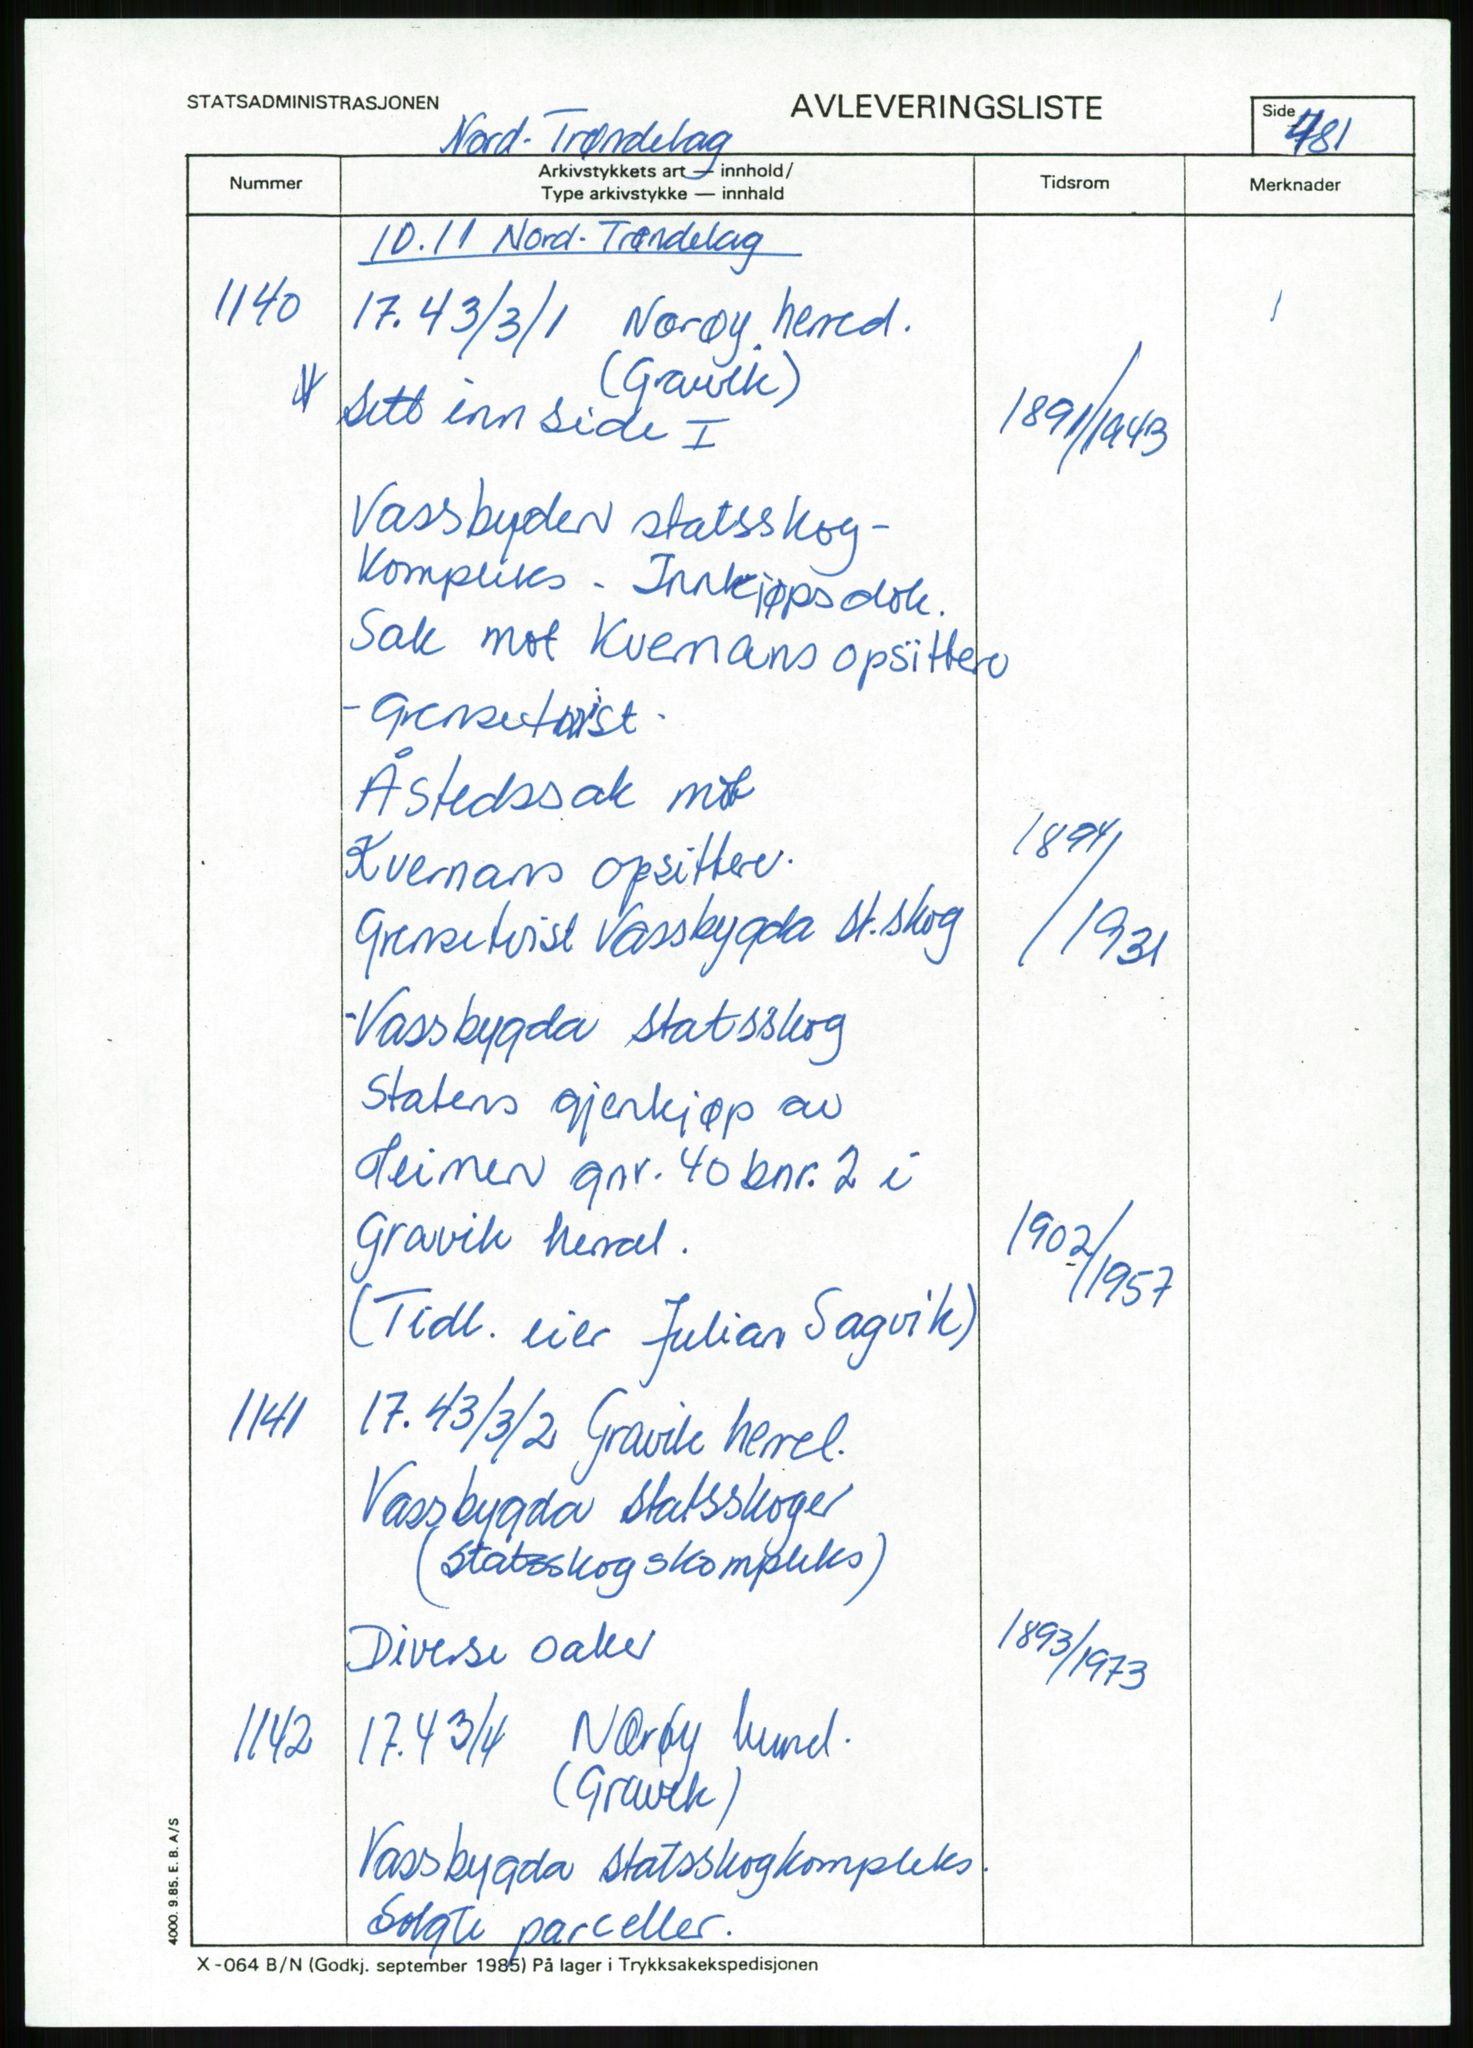 STATSADMINISTRASJONEN
AVLEVERINGSLISTE
Side 481
Nord-Trøndelag
Nummer
Arkivstykkets art — innhold/
Type arkivstykke — innhald
Tidsrom
Merknader
10.11 Nord-Trøndelag
1140 17.43/3/1 Nærøy herred.
(Gravik)
Sett inn side I 1891/1943
Vassbyden statsskog-
kompleks - Innkjøpsdok.
Sak mot Kvernans opsittere
- Grensetvist.
Åstedssak mot
Kvernans opsittere. 1894/
Grensetvist Vassbygda st.skog /1931
- Vassbygda statsskog
Statens gjenkjøp av
Heimen gnr. 40 bnr. 2 i
Gravik herred. 1902/1957
(Tidl. eier Julian Sagvik)
1141 17.43/3/2 Gravik herred.
Vassbygda statsskoger
(Statsskogskompleks)
Diverse saker 1893/1973
1142 17.43/4 Nærøy herred.
(Gravik)
Vassbygda statsskogkompleks.
Solgte parceller.
4000. 9.85. E. B. A/S
X-064 B/N (Godkj. september 1985) På lager i Trykksakekspedisjonen